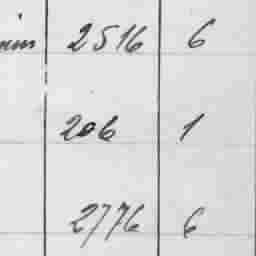 2516 6
206 1
2776 6